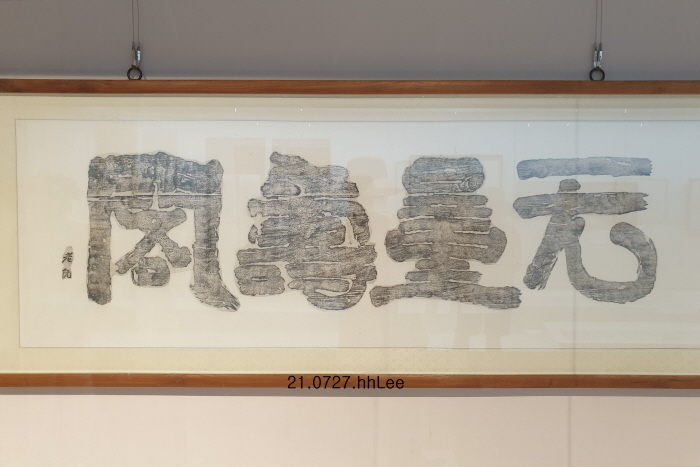 无量壽閣
21.0727.hhLee